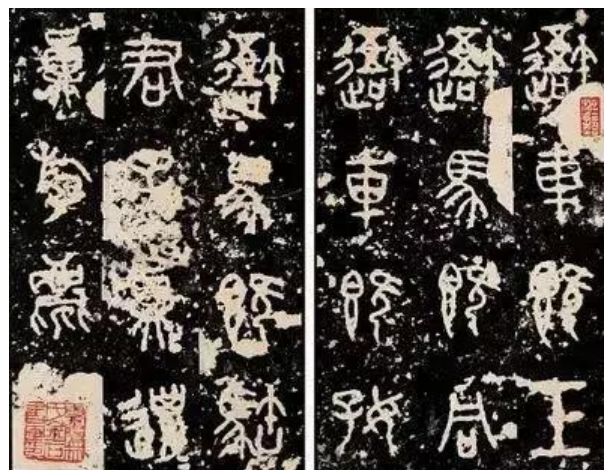 避車既工
避馬既同
避車既好
避馬既𩣡
君子員邋
員斿麀